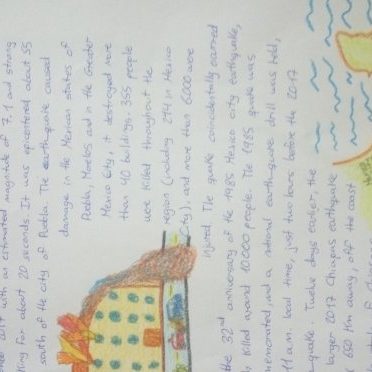 2017 with an estimated magnitude of 7,1 and strong
king for about 20 seconds. It was epicentered about 55
south of the city of Puebla. The earthquake caused
damage in the Mexican states of
Puebla, Morelos and in the Greater
Mexico City, it destroyed more
than 40 buildings. 355 people
were killed throughout the
region (including 214 in Mexico
City), and more than 6000 were
injured. The quake coincidentally occurred
the 32nd anniversary of the 1985 Mexico city earthquake,
killed around 10000 people. The 1985 quake was
memorated, and a national earthquake drill was held,
11 a.m. local time, just two hours before the 2017
quake. Twelve days earlier the
larger 2017 Chiapas earthquake
650 km away, off the coast